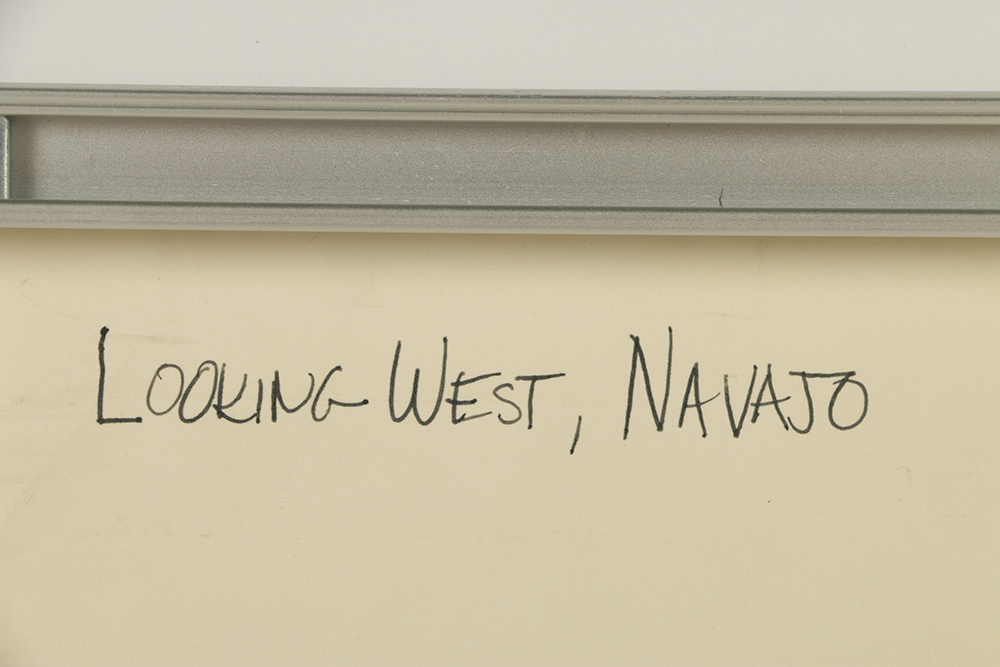 LOOKING WEST, NAVAJO